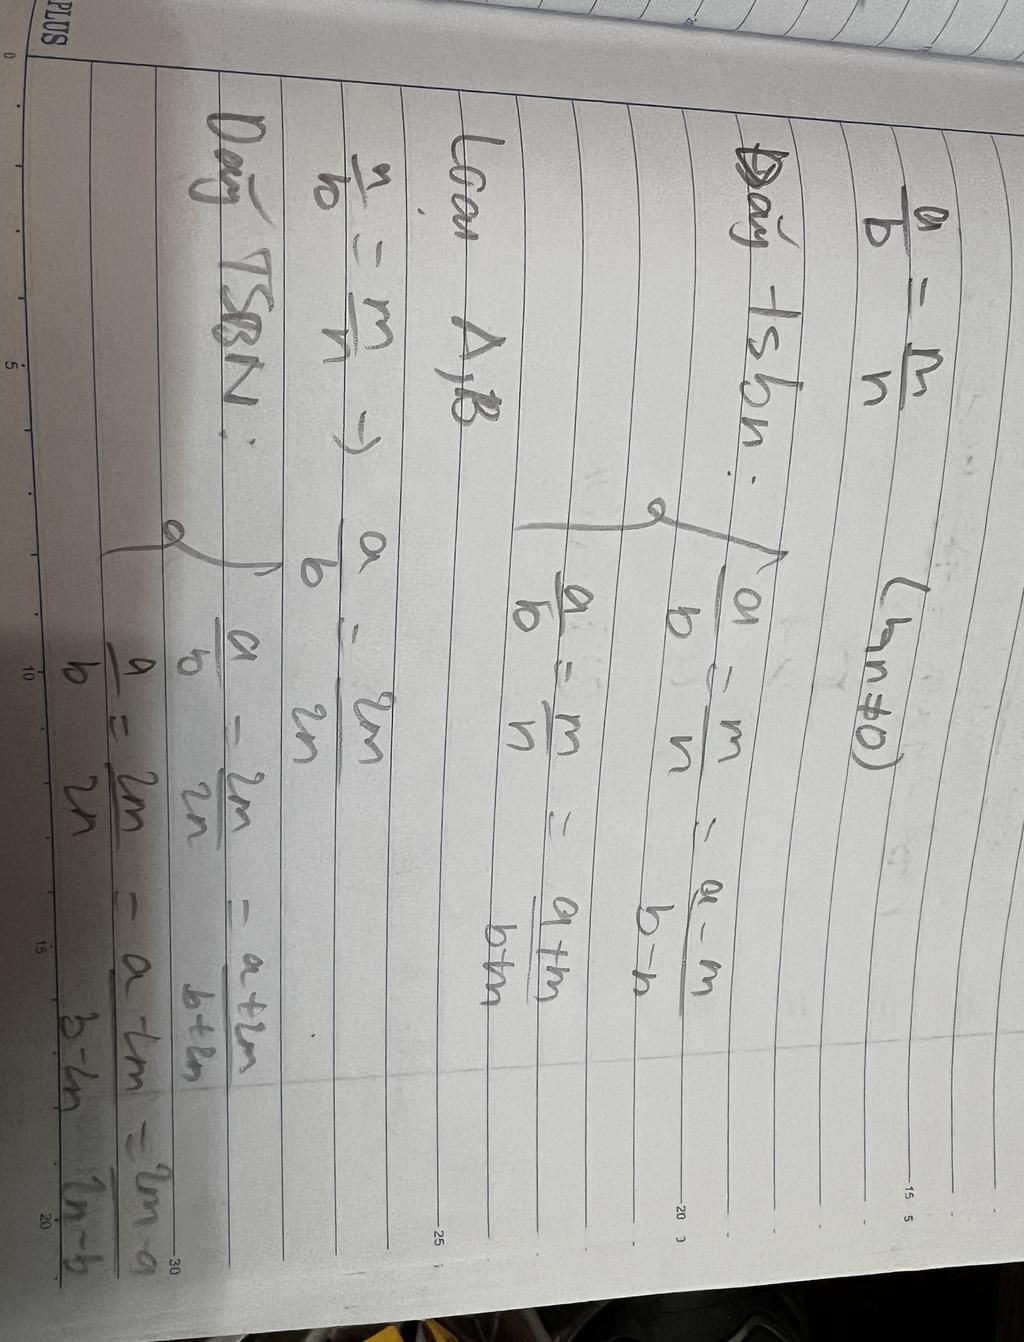 a/b = m/n (b,n≠0)
Dãy tsbn: a/b = m/n = a-m/b-n
a/b = m/n = a+m/b+n
Loại A,B
a/b = m/n → a/b = 2m/2n
Dãy TSBN: a/b = 2m/2n = a+2m/b+2n
a/b = 2m/2n = a-2m/b-2n = 2m-a/2n-b
PLUS
0 5 10 15 20
15 5
20
25
30